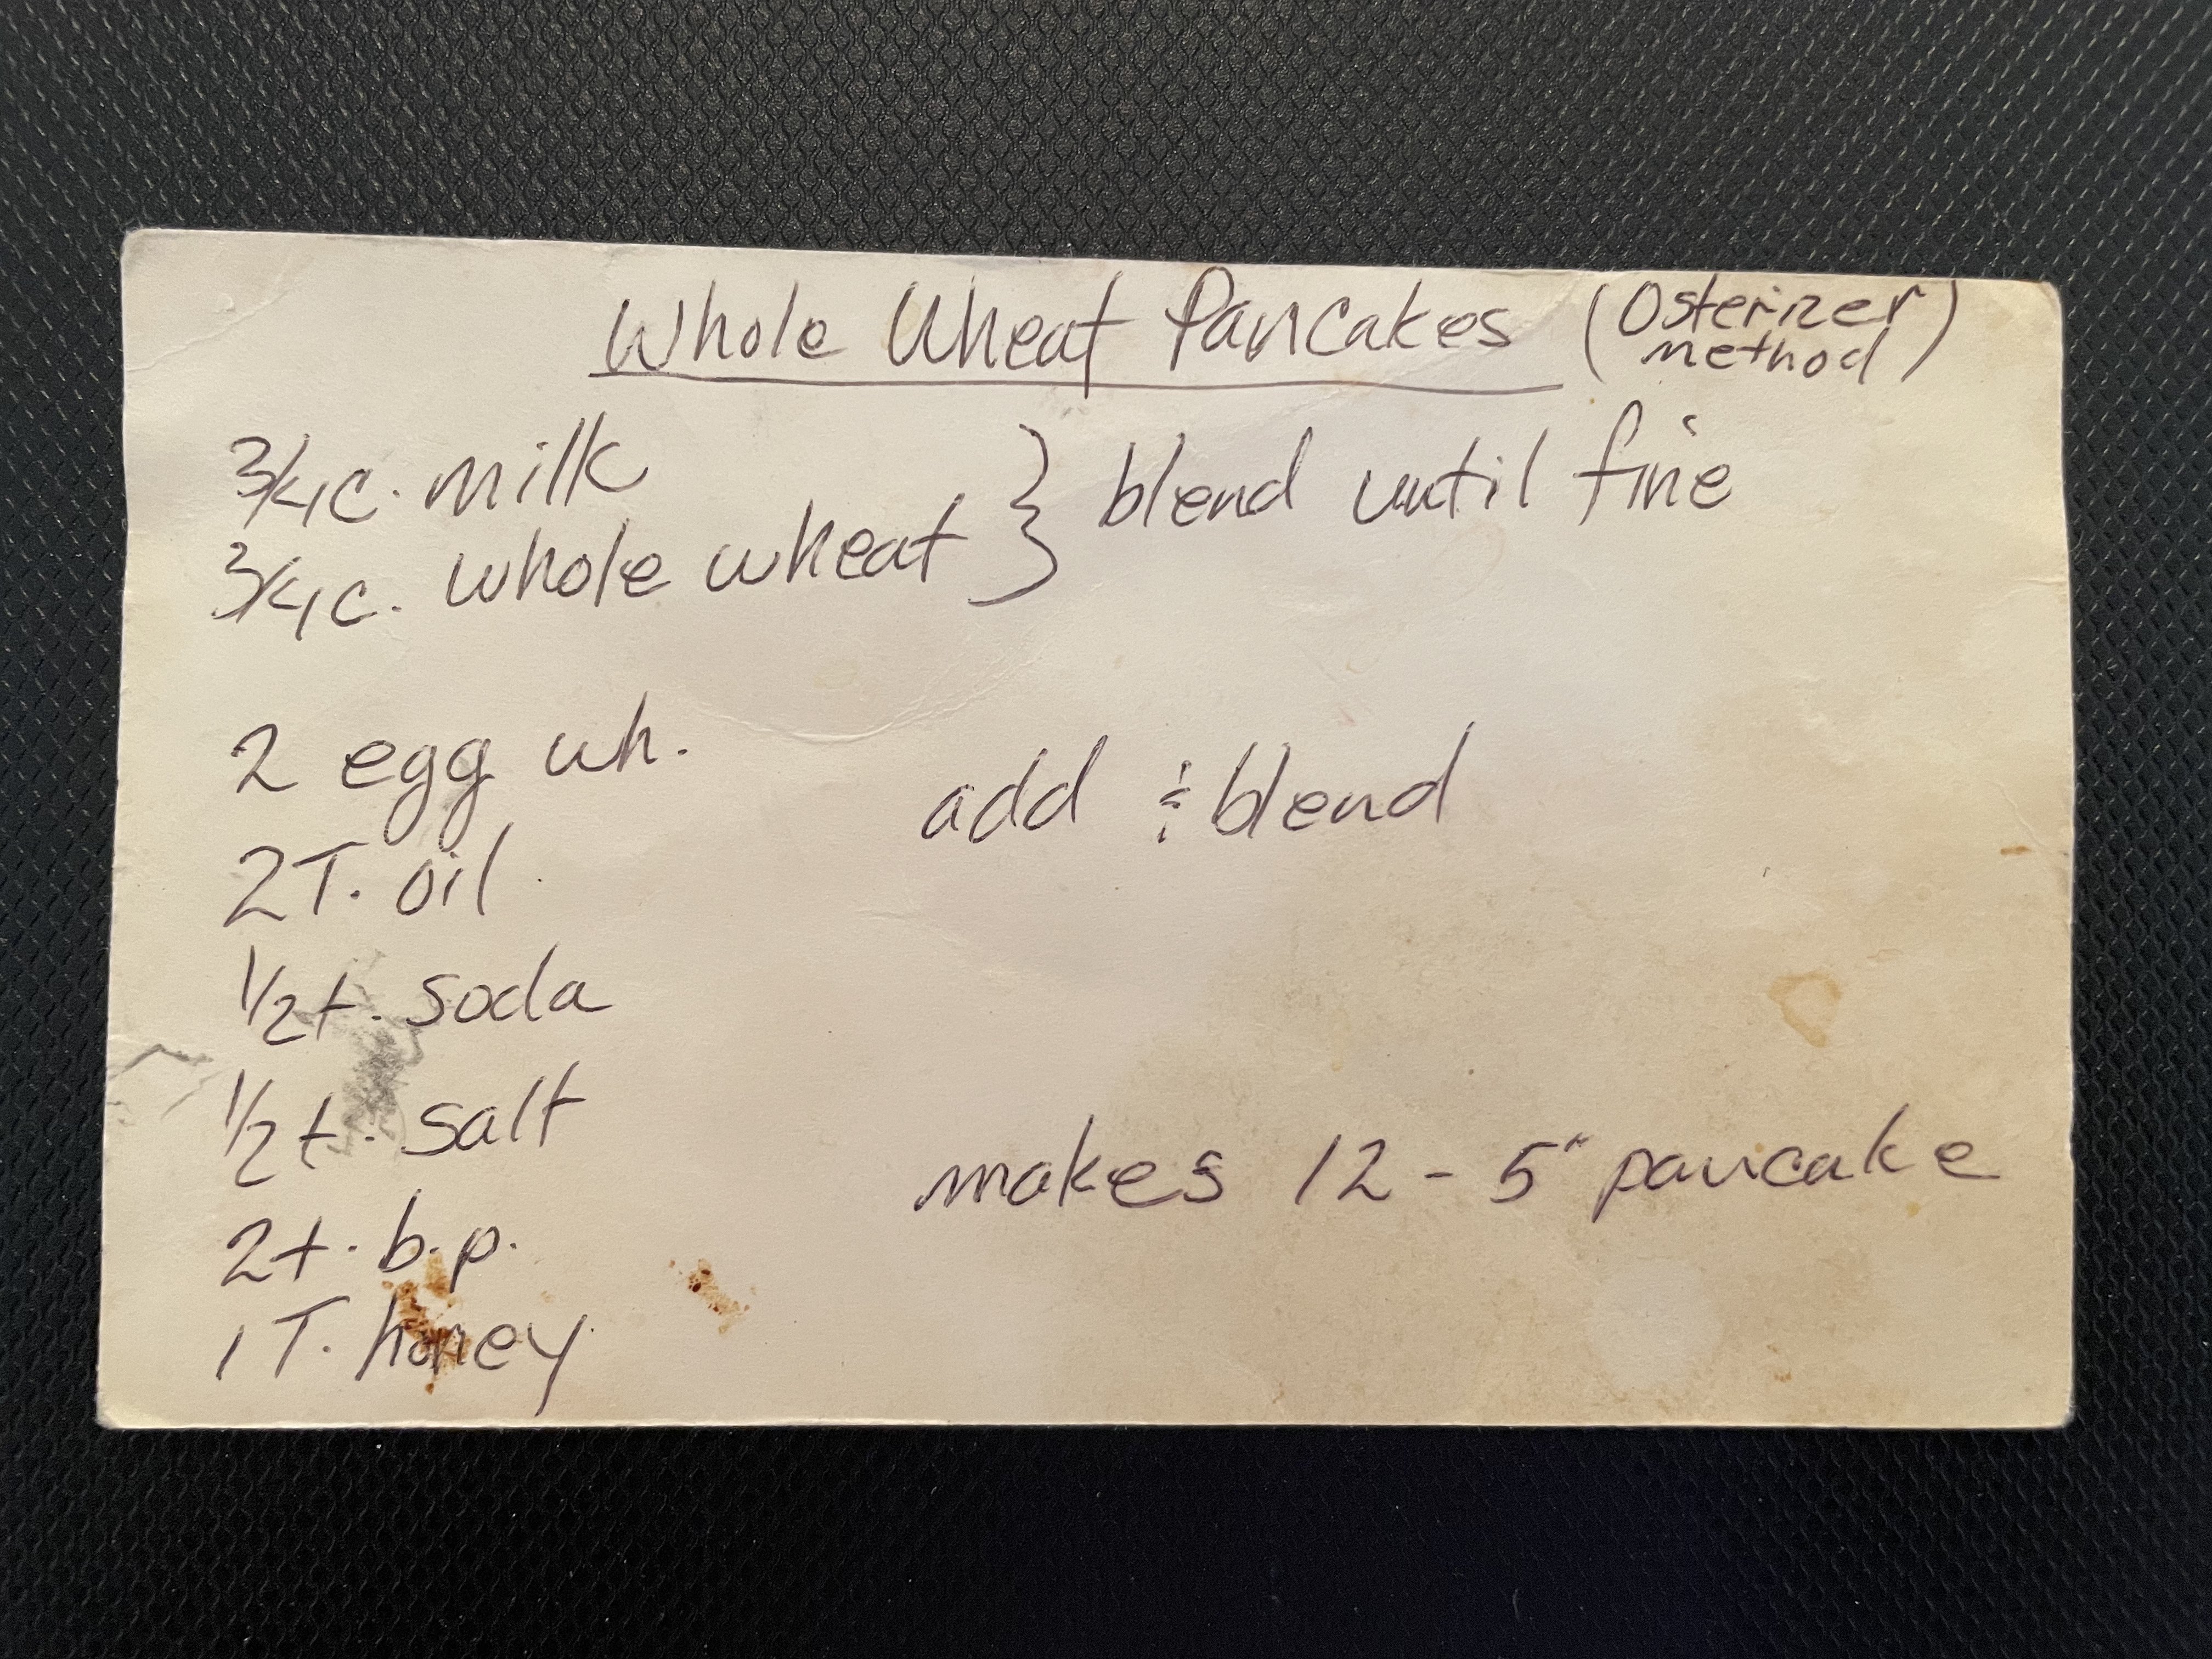 Whole Wheat Pancakes (Osterizer method)
3/4 c. milk
3/4 c. whole wheat } blend until fine
2 egg wh.
add & blend
2 T. oil
1/2 t. soda
1/2 t. salt
makes 12 - 5" pancake
2 t. b.p.
1 T. honey